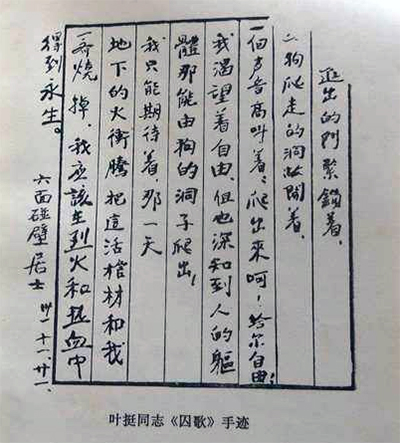 進出的門緊鎖着、
狗爬走的洞敞開着、
一個声音高叫着、爬出來呵！給尔自由！
我渴望着自由、但也深知到人的軀
體那能由狗的洞子爬出！
我只能期待着、那一天
地下的火衝騰、把這活棺材和我
一齊燒掉、我應該在烈火和热血中
得到永生。
六面碰壁居士 卅一、十一、廿一.
叶挺同志《囚歌》手迹